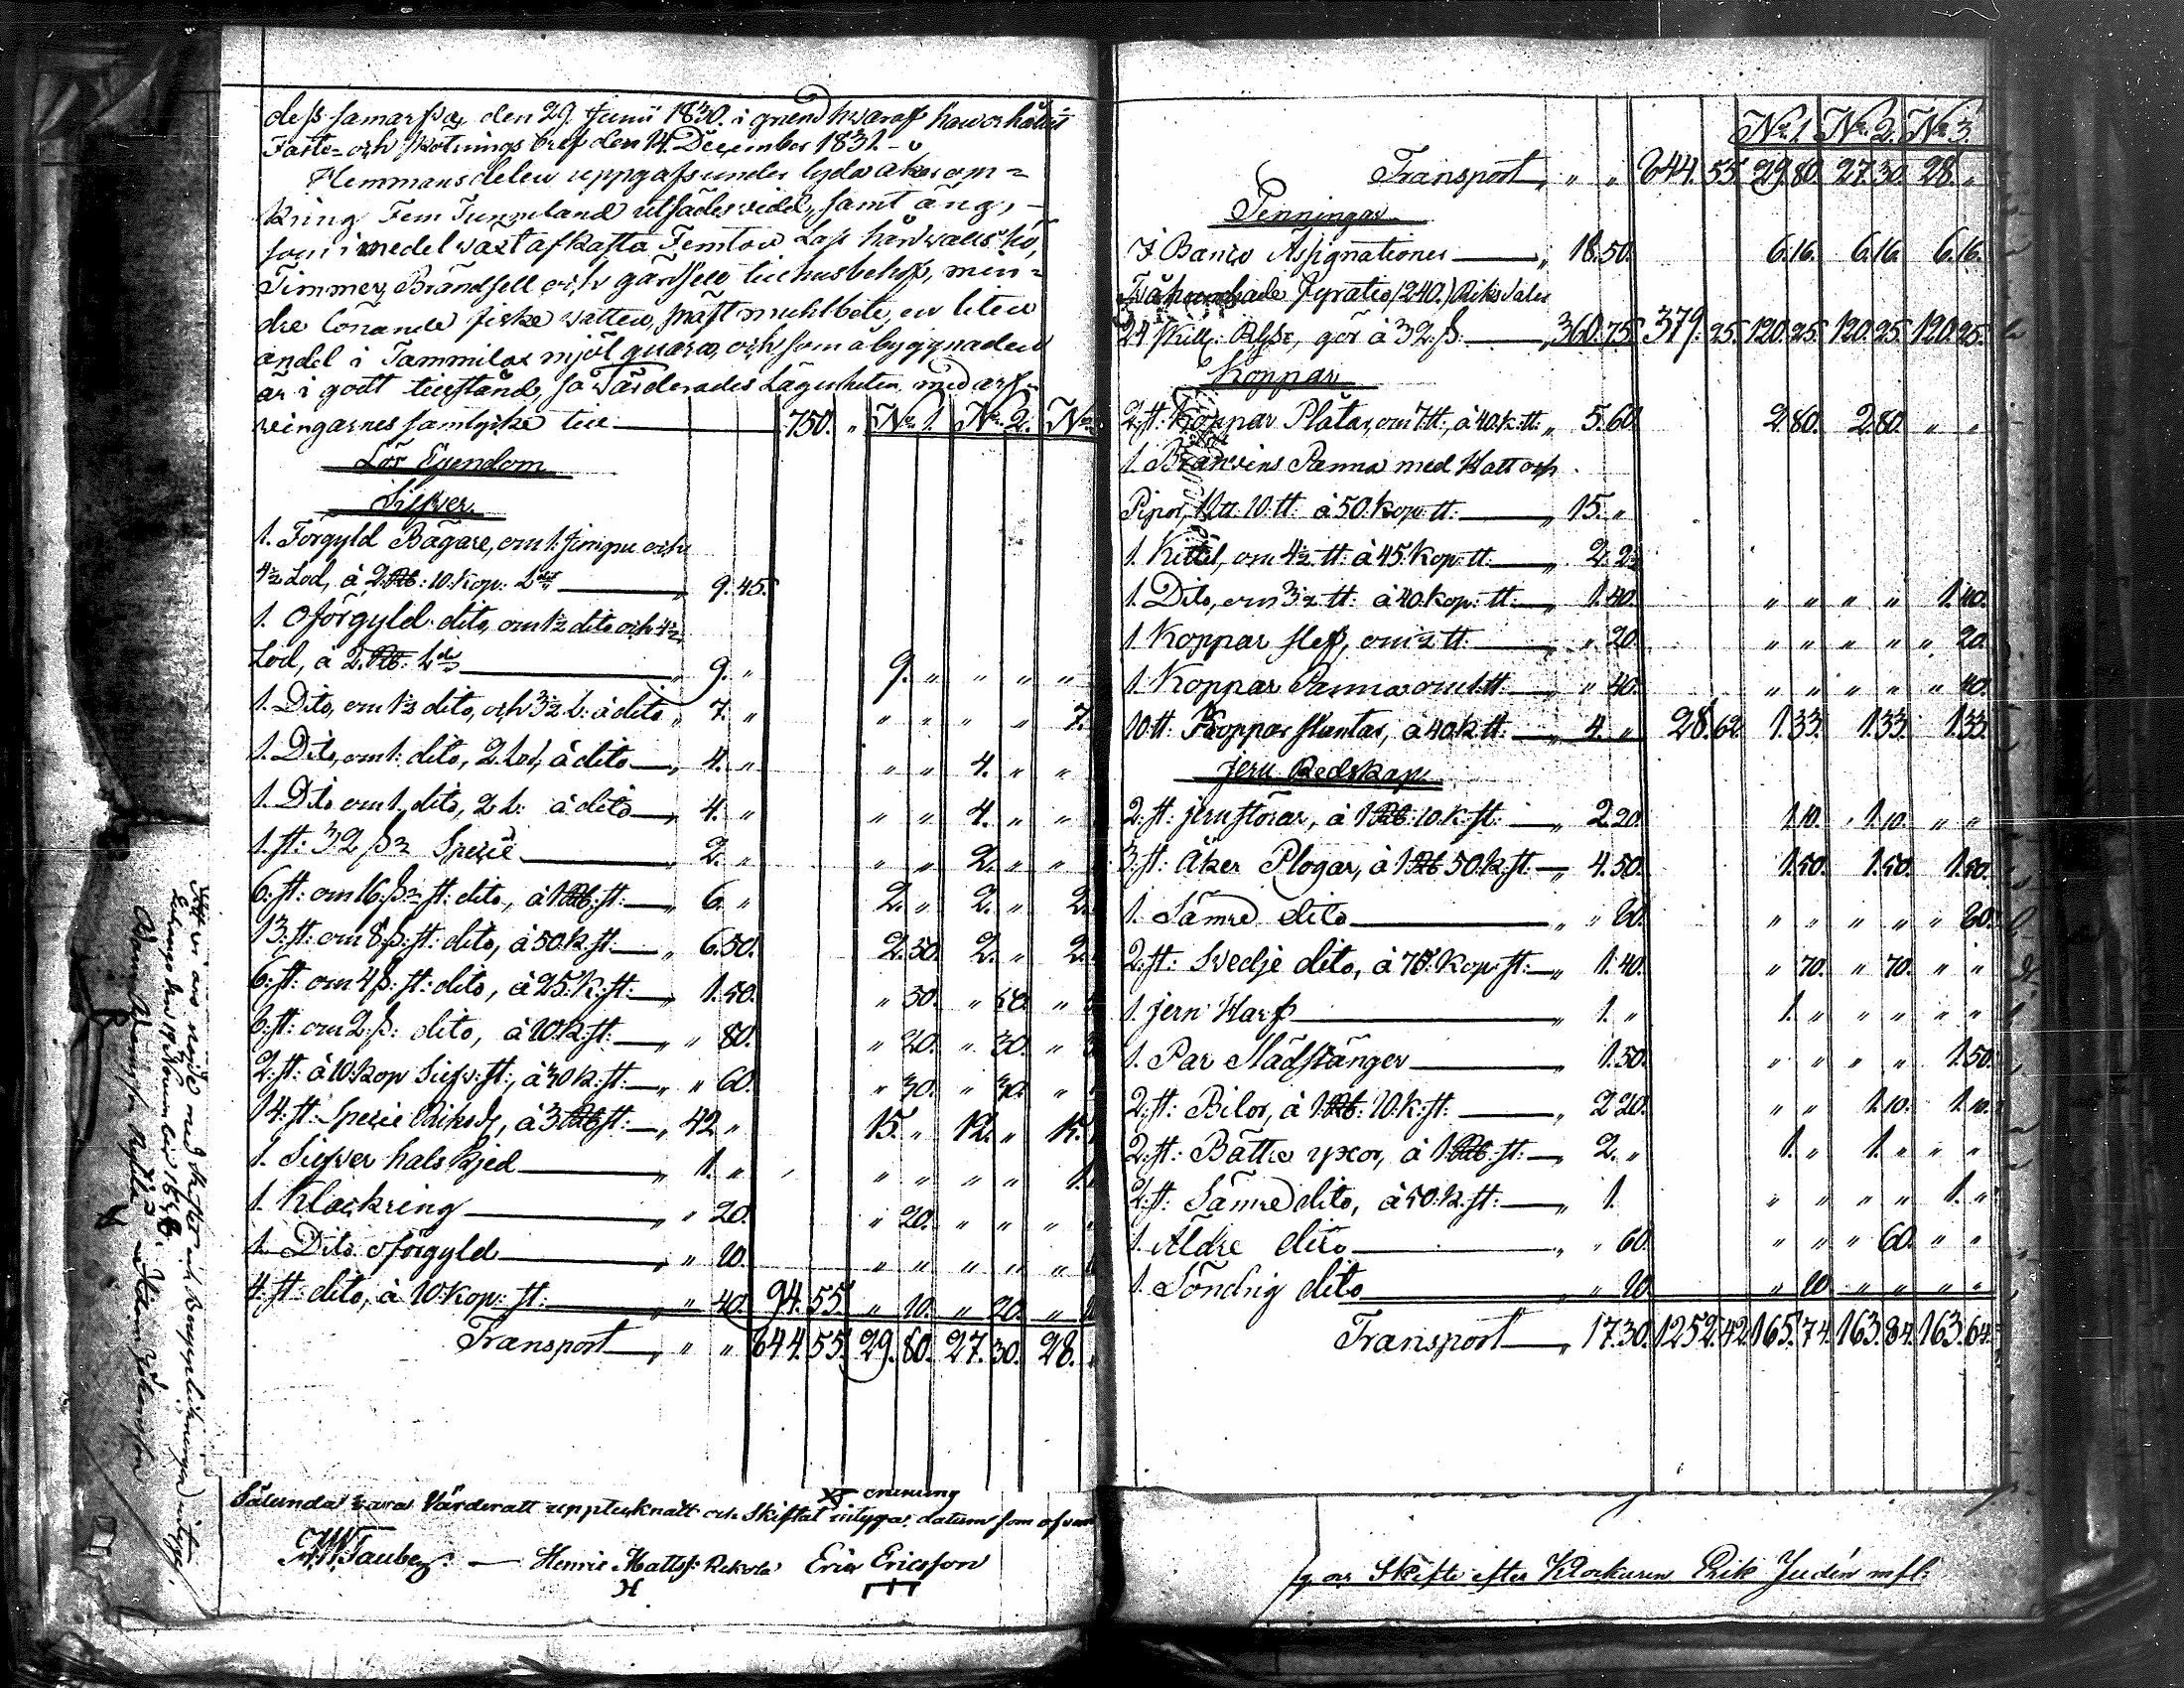 den 29. Junii 1830. i
Faste- och skötnings bref den 14. December 1831.
Hemmansdelen uppgafs under lyda åker om-
kring Fem Tunneland utsädes vidd, samt äng,
som i medel växt afkasta Femton Lass hårdvalls hö,
Timmer, Brändsell och gärdsell till husbehof, min-
dre lönande fiske vatten, muhlbete, en liten
andel i Tammilax mjöl quarn, och som åbyggnaden
är i godt tillstånd, så Värderades Lägenheten med arf-
vingarnes samtycke till 750. " No 1. No 2. No
Lös Egendom
Silfver
1. Förgyld Bägare, om 1. jungfru och
4½ Lod, à 2 Rub: 10. Kop: L 9. 45.
1. Oförgyld dito, om 1½ dito och 4½
Lod, à 2. Rub: L 9. " 9. " " " "
1. Dito, om 1½ dito, och 3½ L: à dito " 7. " " " " " 7.
1. Dito, om 1. dito, 2. Lod, à dito " 4. " " " 4. " "
1. Dito om 1. dito, 2 L: à dito " 4. " " " 4. " "
1. st: 32 Specie " 2. " " " 2. " "
6. st: om 16. st: dito, à 1 Rub st: " 6. " 2. " 2. " 2.
13. st: om 8. st: dito, à 50. k. st: " 6. 50. 2. 50. 2. " 2.
6. st: om 4 st: dito, à 25. k. st: " 1. 50. " 50. " 50. "
8. st: om 2. dito, à 10. k. st: " " 80. " 20. " 30. "
2. st: à 10. kop Silfv: st:, à 30 k: st: " " 60. " 30. " 30. "
14. st. Specie Riksd, à 3 Rub st: " 42 " 15. " 12. " 15.
1. Silfver halskjed " 1. " " " " " 1.
1. Klackring " " 20. " 20. " " "
1. Dito oförgyld " " 10. " " " " "
4. st: dito, à 10. kop: st: " " 40. 94. 55. " 10. " 20. "
Transport " " " 844. 55. 29. 80. 27. 30. 28.
Sålunda vara Värderatt upptecknatt och Skiftat intygas datum som ofvan
Taube Henric Matts: Rekola Eric Ericsson
No 1. No 2. No 3.
Transport " " 844. 55. 29. 80. 27. 30. 28. "
Penningar
I Banco Assignationer " 18. 50. 6. 16. 6. 16. 6. 16.
Tvåhundrade Fyratio (240.) Riks daler
24 Skill: gör à 32. " 360. 75. 379. 25. 120. 25. 120. 25. 120. 25.
Koppar
2. st: Koppar Plåtar, om 7 tt:, à 40. k: tt: " 5. 60. 2. 80. 2. 80. " "
1. Brännvins Panna med Hatt och
Pipor, 10. tt: à 50. kop: tt: " 15. "
1. Kittel, om 4½ tt: à 45. Kop: tt: " 2. 2½
1. Dito, om 3½ tt: à 40. kop: tt: " 1. 40. " " " " 1. 40.
1. Koppar slef, om ½ tt: " " 20. " " " " " 20.
1. Koppar Panna om 1. tt: " " 40. " " " " " 40.
10. tt: Koppar slantar, à 40 k. tt: " 4. " 28. 62. 1. 33. 1. 33. 1. 33.
Jern Redskap
2. st: jern störar, à 1 Rub: 10. k. st: " 2. 20. 1. 10. 1. 10. " "
3. st: Åker Plogar, à 1 Rub 50. k. st: " 4. 50. 1. 50. 1. 50. 1. 50.
1. Sämre dito " " 60. " " " " " 60.
2. st: Svedje dito, à 70. Kop: st: " 1. 40. " 70. " 70. " "
1. jern Harf " 1. " 1. " " " " "
1. Par Städstänger " 1. 50. " " " " 1. 50.
2. st: Bilor, à 1 Rub: 10. k: st: " 2. 20. " " 1. 10. 1. 10.
2. st: Bättre yxor, à 1 Rub: st: " 2. " 1. " 1. " " "
2. st: Sämre dito, à 50. k. st: " 1. " " " " 1. "
1. Äldre dito " " 60. " " " 60. " "
1. Söndrig dito " " 10. " 10. " " " "
Transport " 17. 30. 1252. 42. 165. 74. 163. 84. 163. 64.
Skifte efter Klockaren Erik Judén mfl: